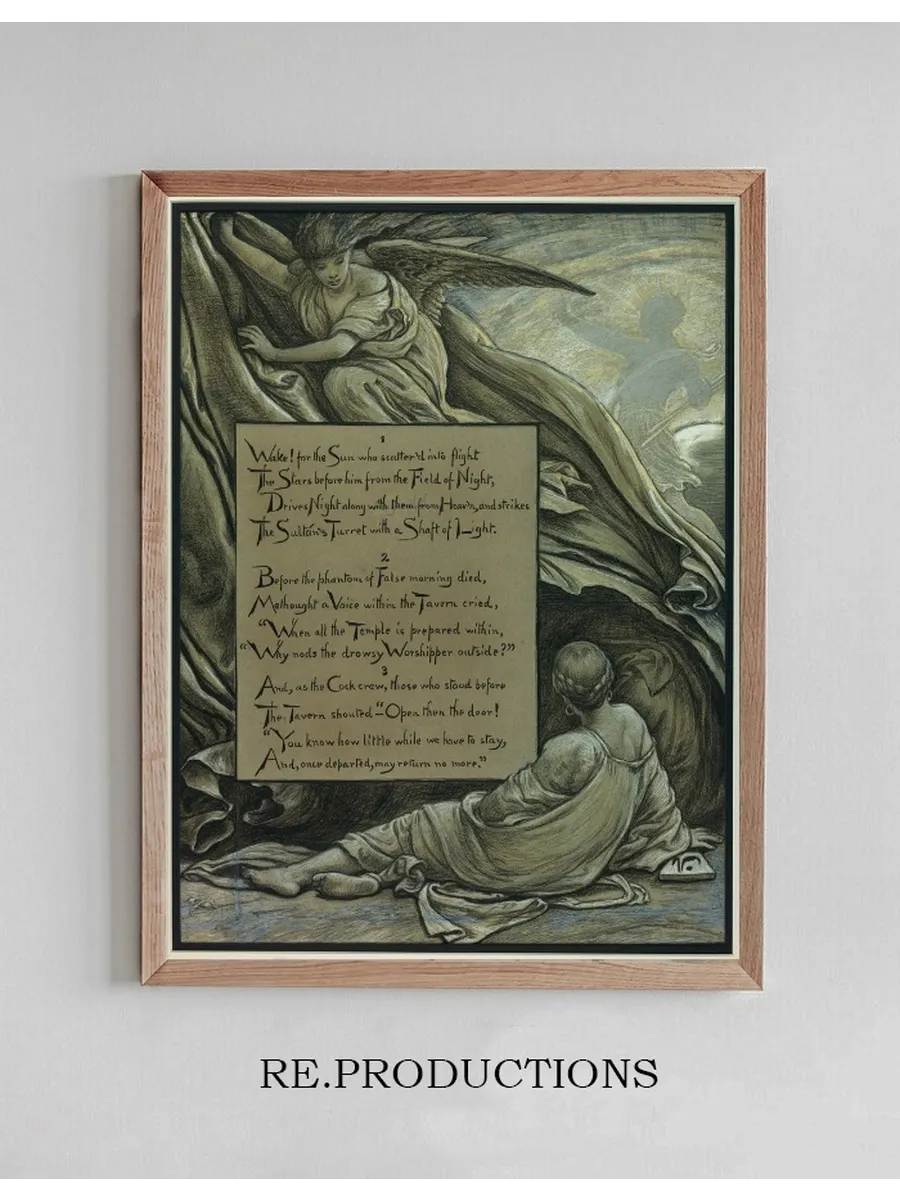 1
Wake! for the Sun who scatter'd into flight
The Stars before him from the Field of Night,
Drives Night along with them from Heav'n, and strikes
The Sultán's Turret with a Shaft of Light.
2
Before the phantom of False morning died,
Methought a Voice within the Tavern cried,
"When all the Temple is prepared within,
"Why nods the drowsy Worshipper outside?"
3
And, as the Cock crew, those who stood before
The Tavern shouted – "Open then the door!
"You know how little while we have to stay,
And, once departed, may return no more."
RE.PRODUCTIONS